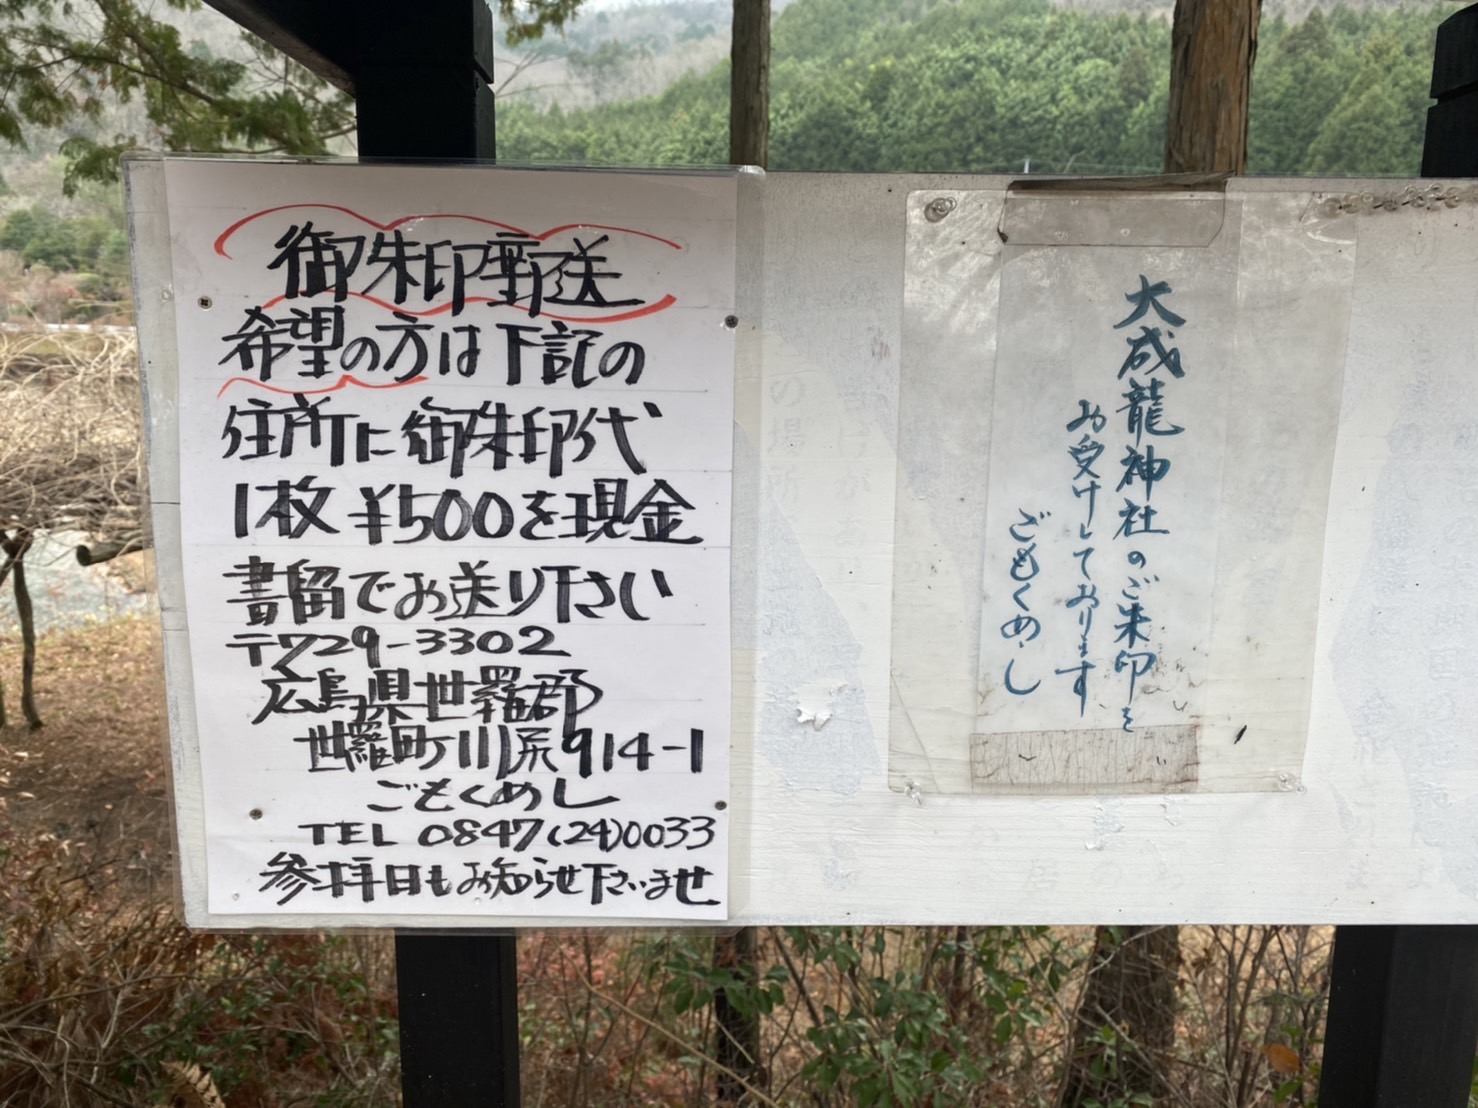 御朱印郵送
希望の方は下記の
住所に御朱印代
1枚¥500を現金
書留でお送り下さい
〒729-3302
広島県世羅郡
世羅町川尻914-1
ごもくめし
TEL 0847(24)0033
参拝日もお知らせ下さいませ
大成龍神社のご朱印を
お受けしております
ごもくめし